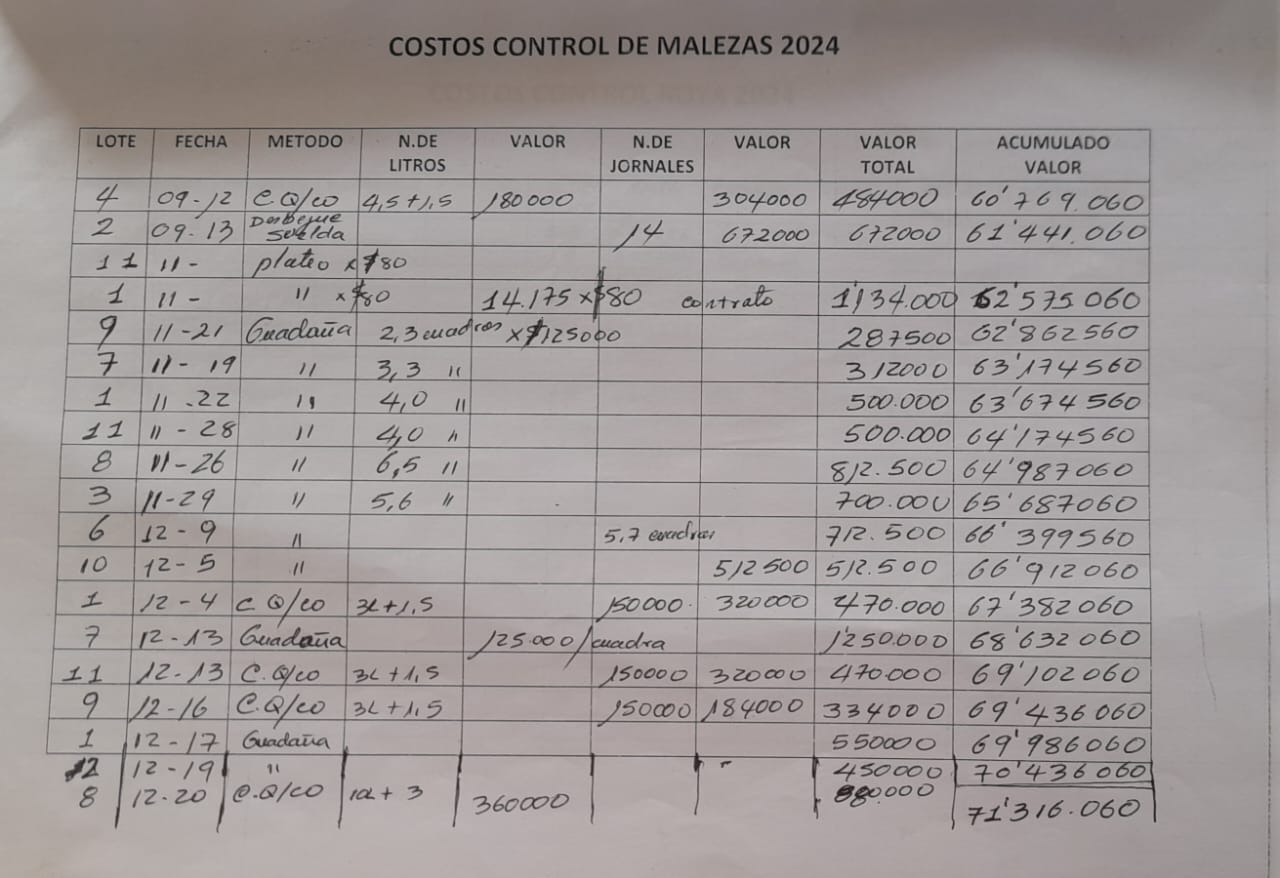 COSTOS CONTROL DE MALEZAS 2024
LOTE FECHA METODO N.DE LITROS VALOR N.DE JORNALES VALOR VALOR TOTAL ACUMULADO VALOR
4 09-12 C.Q/co 4,5+1,5 180000 304000 484000 60'769.060
2 09.13 Suelda 14 672000 672000 61'441.060
11 11- plateo x $80
1 11- " x $80 14.175 x $80 contrato 1'134.000 62'575060
9 11-21 Guadaña 2,3 cuadros x $125000 287500 62'862560
7 11-19 " 3,3 " 312000 63'174560
1 11.22 " 4,0 " 500.000 63'674560
11 11-28 " 4,0 " 500.000 64'174560
8 11-26 " 6,5 " 812.500 64'987060
3 11-29 " 5,6 " 700.000 65'687060
6 12-9 " 5,7 cuadras 712.500 66'399560
10 12-5 " 512500 512.500 66'912060
1 12-4 C Q/co 3L+1,5 150000. 320000 470.000 67'382060
7 12-13 Guadaña 125.000/cuadra 1'250.000 68'632060
11 12-13 C.Q/co 3L+1,5 150000 320000 470.000 69'102060
9 12-16 C.Q/co 3L+1,5 150000 184000 334000 69'436060
1 12-17 Guadaña 550000 69'986060
12-19 " 450000 70'436060
8 12.20 C.Q/co 360000 880.000 71'316.060